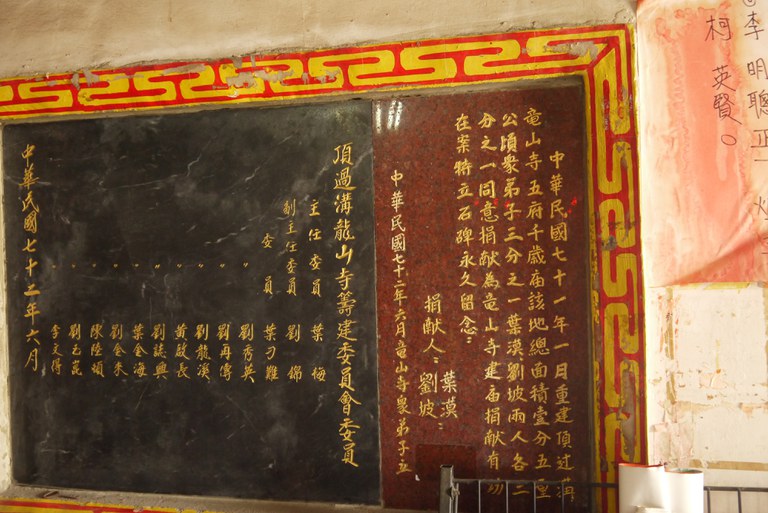 李明聰
柯英賢
中華民國七十一年一月重建頂过溝
竜山寺五府千歳庙該地總面積壹分五厘
公頃衆弟子三分之一葉漠劉坡兩人各三
分之一同意捐献為竜山寺建庙捐献有功
在案特立石碑永久留念
捐献人：葉漠
劉坡
中華民國七十二年六月竜山寺衆弟子立
頂過溝龍山寺籌建委員會委員
主任委員 葉梅
副主任委員 劉錦
委員 葉刁難
劉秀英
劉再傳
劉龍漢
黃啟長
劉誌興
葉金海
劉金朱
陳陸頓
劉玉崑
李文得
中華民國七十二年六月